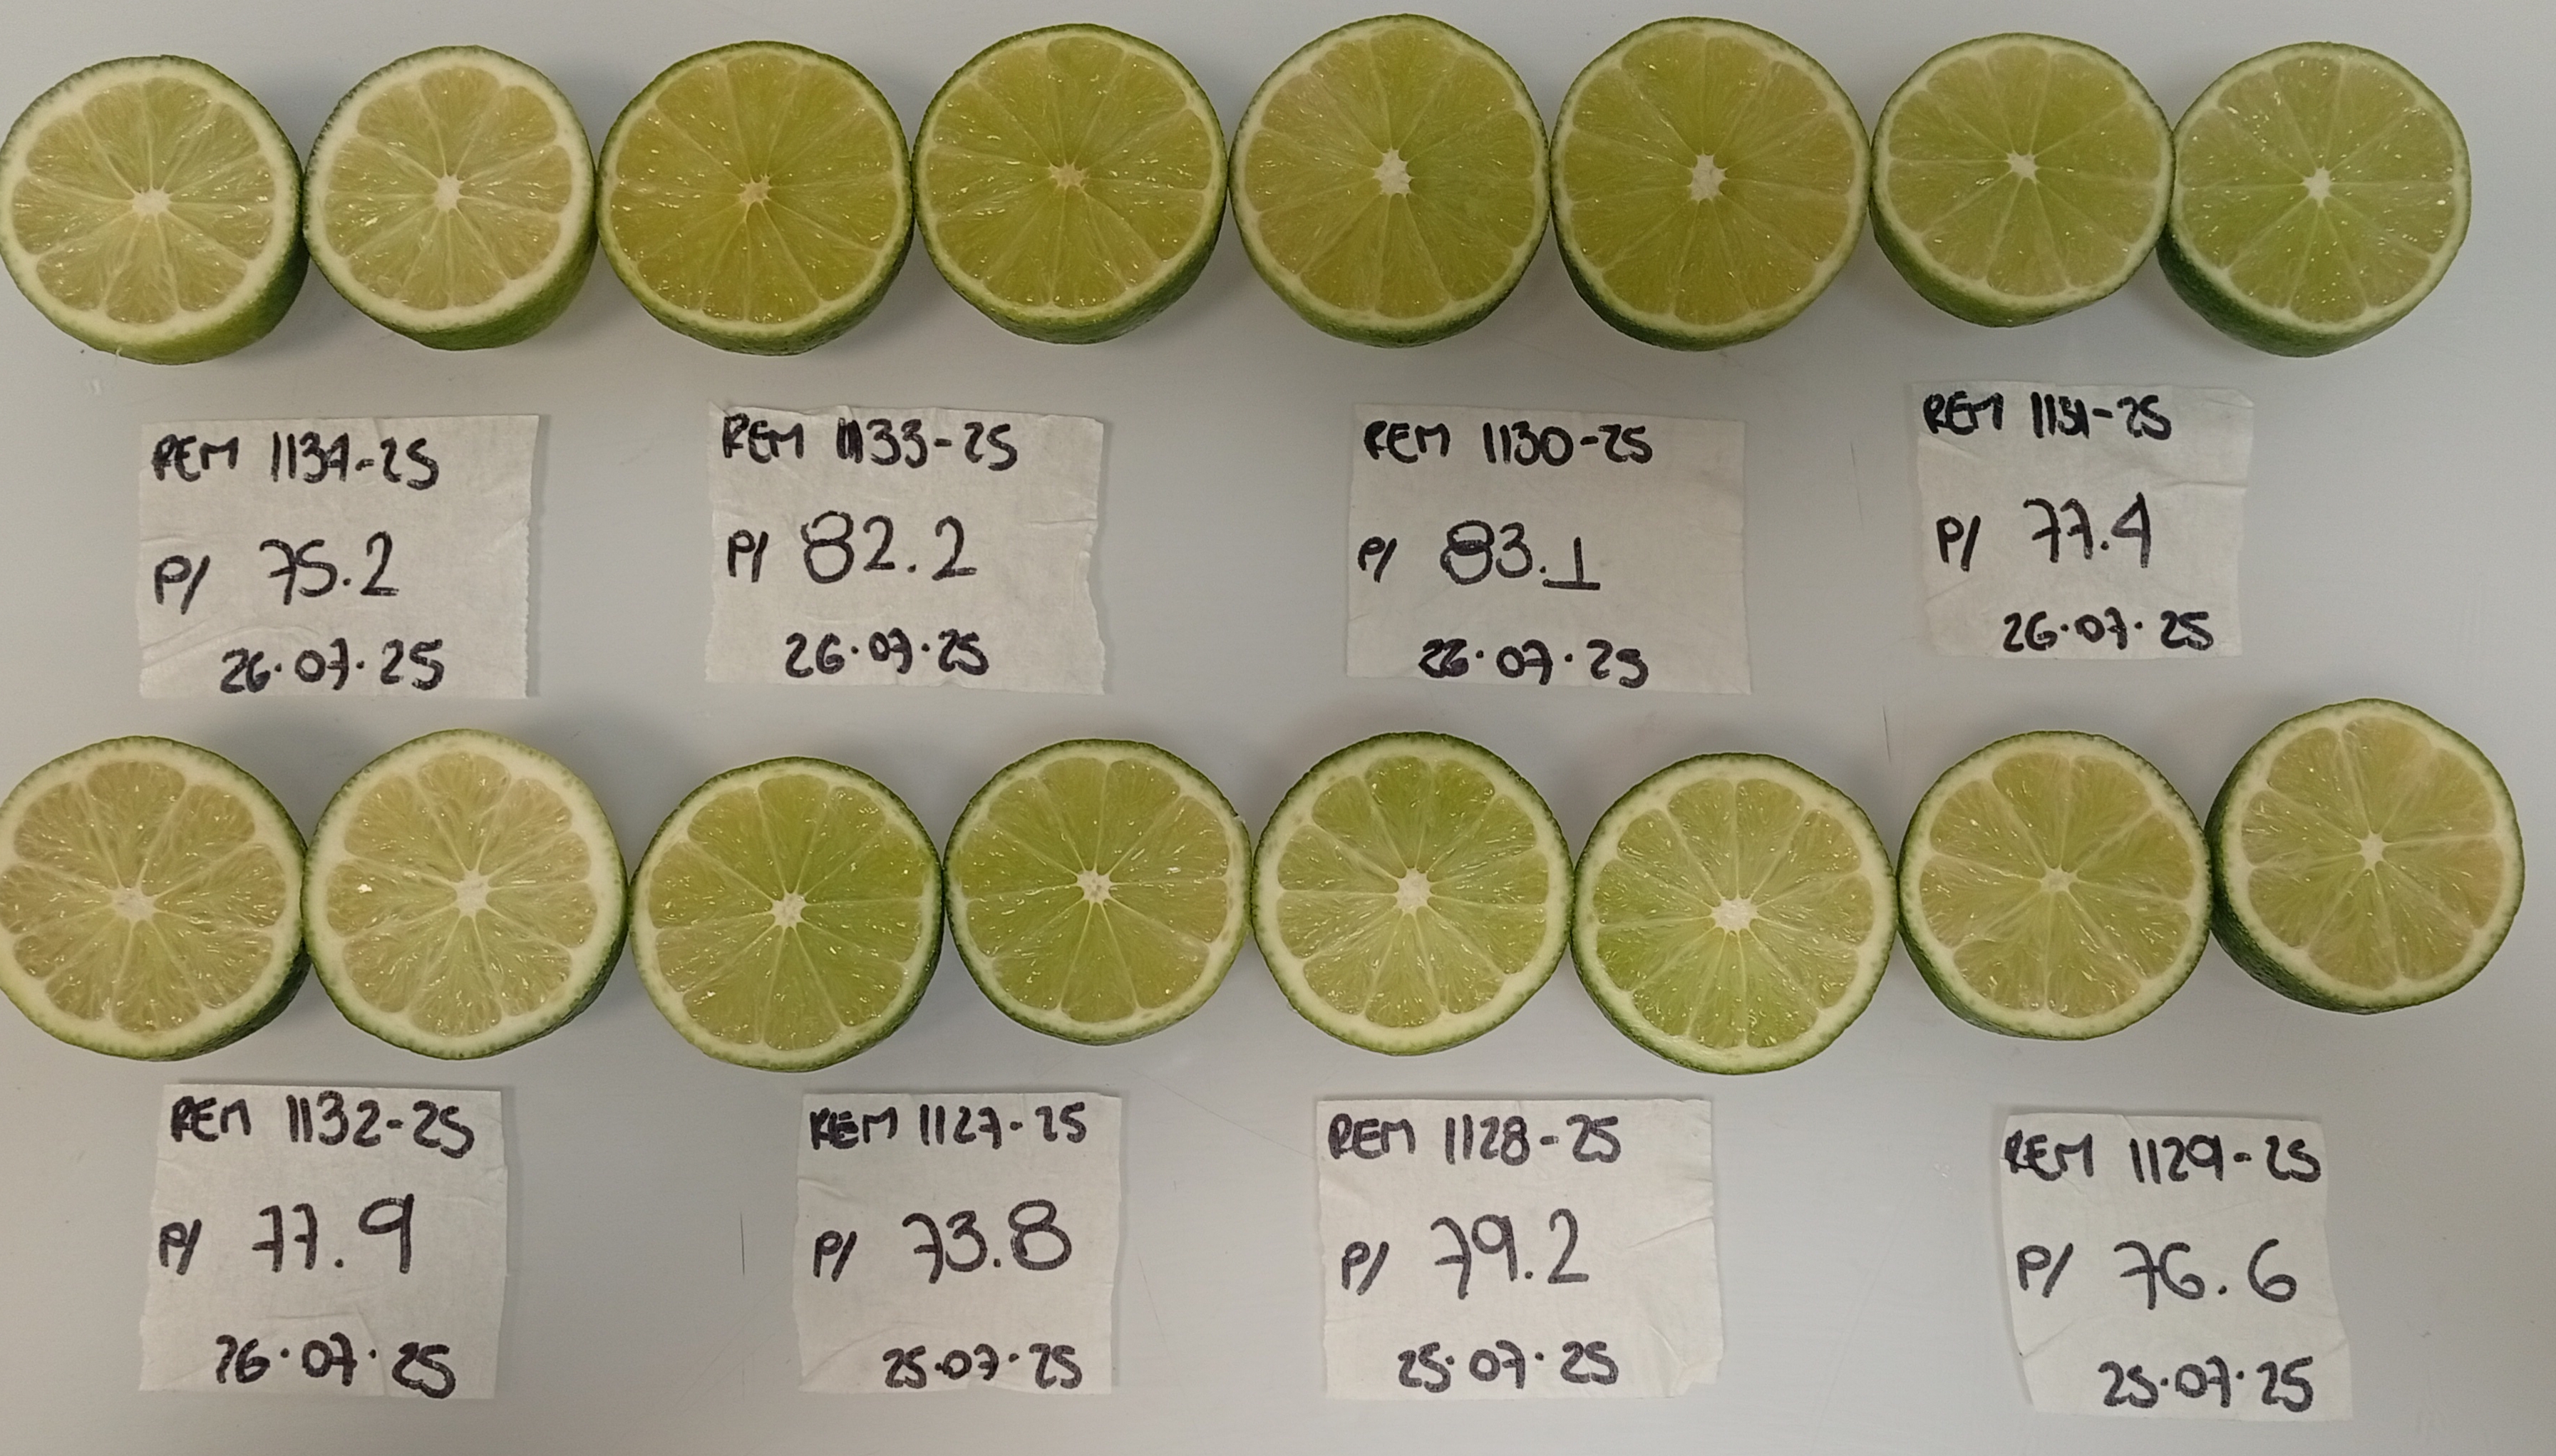 REM 1134-25
P/ 75.2
26.07.25
REM 1133-25
P/ 82.2
26.07.25
REM 1130-25
P/ 83.1
26.07.25
REM 1131-25
P/ 77.4
26.07.25
REM 1132-25
P/ 77.9
26.07.25
REM 1127-25
P/ 73.8
25.07.25
REM 1128-25
P/ 79.2
25.07.25
REM 1129-25
P/ 76.6
25.07.25